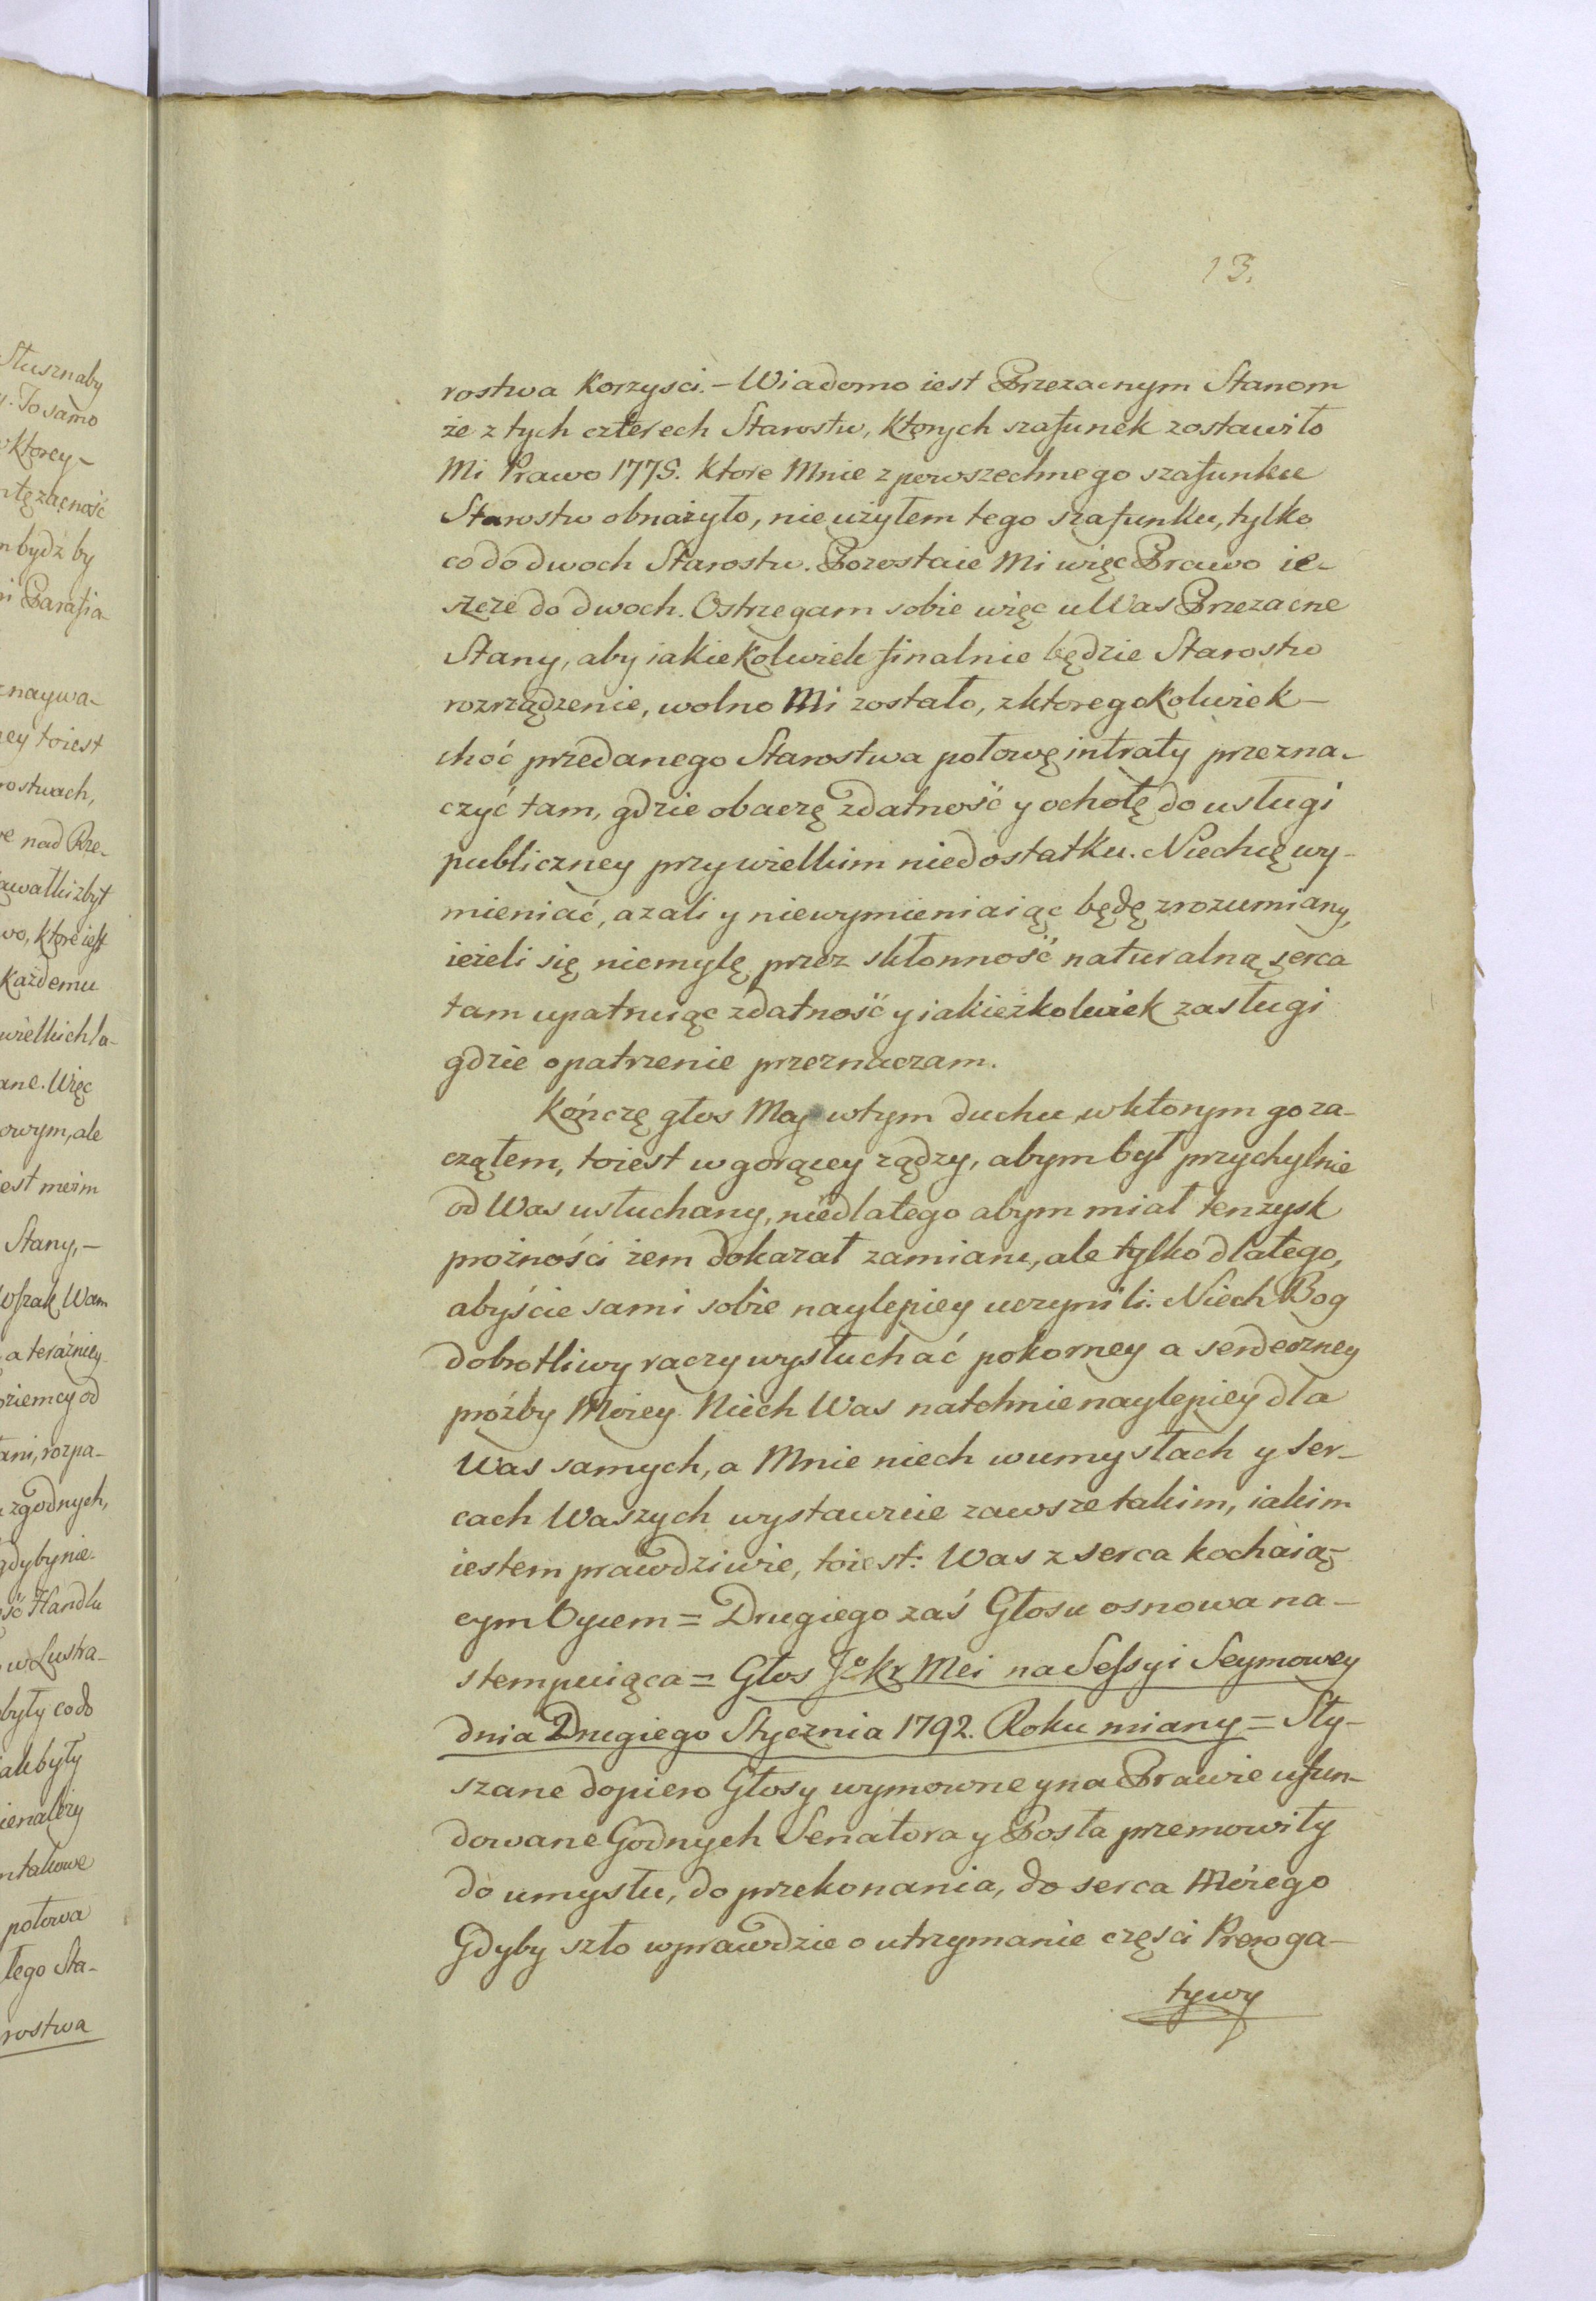 13.
rostwa korzysci. – Wiadomo iest Przezacnym Stanom
że z tych czterech Starostw, ktorych szafunek zostawiło
Mi Prawo 1775. ktore Mnie z powszechnego szafunku
Starostw obnażyło, nie użyłem tego szafunku, tylko
co do dwoch Starostw. Pozostaie Mi więc Prawo ie-
szcze do dwoch. Ostrzegam sobie więc u Was Przezacne
Stany, aby iakiekolwiek finalnie będzie Starostw
rozrządzenie, wolno Mi zostało, z ktoregokolwiek –
choć przedanego Starostwa połowę intraty przezna-
czyć tam, gdzie obaczę zdatność y ochotę do usługi
publiczney przy wielkim niedostatku. Niechcę wy-
mieniać, azali y niewymieniaiąc będę zrozumiany,
ieżeli się niemylę przez skłonność naturalną serca
tam upatruiąc zdatność y iakieżkolwiek zasługi
gdzie opatrzenie przeznaczam.
Kończę głos Moy w tym duchu w ktorym go za-
cząłem, toiest w gorącey rządzy, abym był przychylnie
od Was usłuchany, niedlatego abym miał ten zysk
prożności żem dokazał zamiaru, ale tylko dlatego,
abyście sami sobie naylepiey uczynili. Niech Bog
dobrotliwy raczy wysłuchać pokorney a serdeczney
proźby Moiey. Niech Was natchnie naylepiey dla
Was samych, a Mnie niech w umysłach y ser-
cach Waszych wystawuie zawsze takim, iakim
iestem prawdziwie, toiest: Was z serca kochaią-
cym Oycem = Drugiego zaś Głosu osnowa na-
stempuiąca = Głos JoKr Mci na Sessyi Seymowey
dnia Drugiego Stycznia 1792. Roku miany = Sły-
szane dopiero Głosy wymowne y na Prawie ufun-
dowane Godnych Senatora y Posła przemowiły
do umysłu, do przekonania, do serca Moiego
Gdyby szło wprawdzie o utrzymanie części Preroga-
tywy
Słusznaby
To samo
ktorey –
zacność
bydź by
Parafia-
naywa-
ey toiest
rostwach,
nad Rze-
zbyt
ktore iest
każdemu
wielkich la-
Więc
owym, ale
Stany, –
Wszak Wam
a teraźniey
ziemcy od
rozpa-
zgodnych,
gdyby nie-
Handlu
w Lustra-
były co do
były
ienależy
takowe
połowa
tego Sta-
rostwa